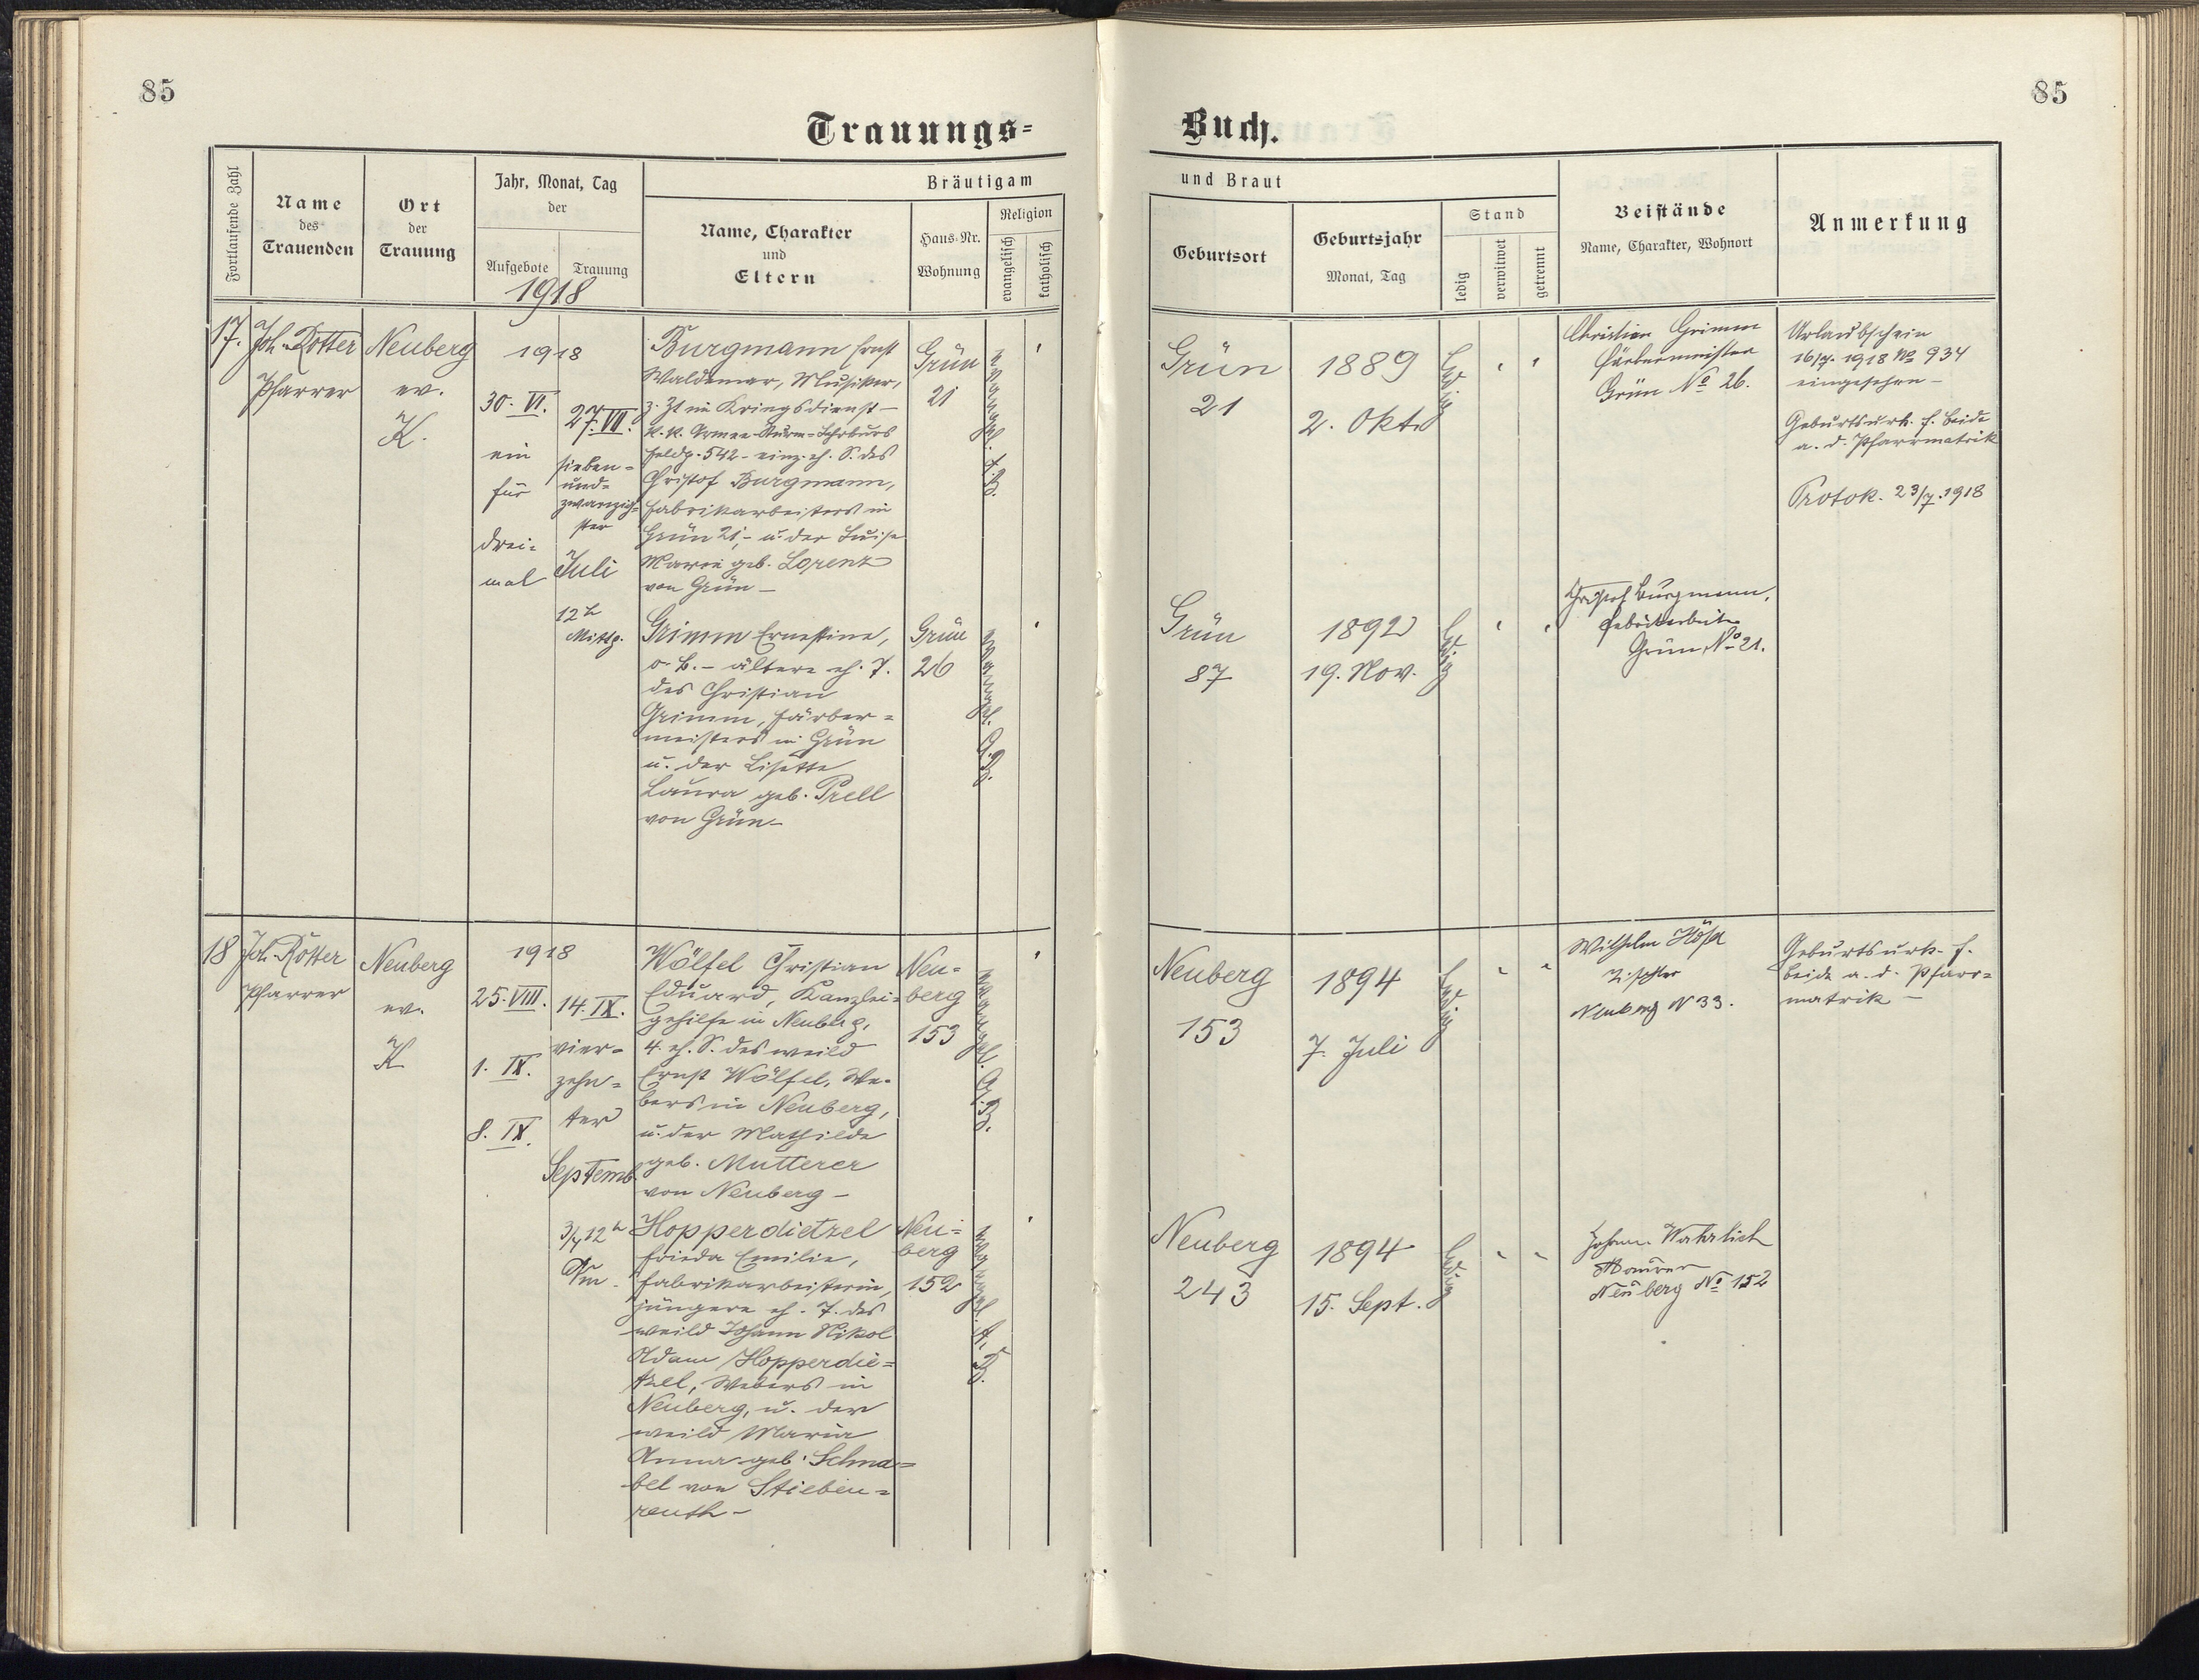 85
85
Trauungs=
Buch.
Fortlaufende Zahl
Name
des
Trauenden
Ort
der
Trauung
Jahr, Monat, Tag
der
Aufgebote
Trauung
1918
Bräutigam
Name, Charakter
und
Eltern
Haus-Nr.
Wohnung
Religion
evangelisch
katholisch
und Braut
Geburtsort
Geburtsjahr
Monat, Tag
Stand
ledig
verwitwet
getrennt
Beistände
Name, Charakter, Wohnort
Anmerkung
17.
Joh. Rotter
Pfarrer
Neuberg
ev.
K.
1918
30. VI.
ein
für
drei=
mal
27. VII.
sieben=
und=
zwanzig=
ster
Juli
12 h
Mittg.
Burgmann Ernst
Waldemar, Musiker,
z. Zt im Kriegsdienst –
k. k. Armee-Sturm=Lehrkurs
Feldp. 542 – einz. eh. S. des
Christof Burgmann,
Fabrikarbeiters in
Grün 21, – u. der Luise
Marie geb. Lorenz
von Grün –
Grün
21
evangel.
A. B.
Grimm Ernestine,
o. B. – ältere eh. T.
des Christian
Grimm, Färber=
meisters in Grün
u. der Lisette
Laura geb. Prell
von Grün –
Grün
26
evangel.
A. B.
Grün
21
1889
2. Okt.
ledig
Christian Grimm
Färbermeister
Grün No 26.
Urlaubschein
16/7. 1918 No 934
eingesehen –
Geburtsurk. f. beide
a. d. Pfarrmatrik
Protok. 23/7. 1918
Grün
87
1892
19. Nov.
ledig
Christof Burgmann,
Fabrikarbeiter
Grün No 21.
18
Joh. Rotter
Pfarrer
Neuberg
ev.
K
1918
25. VIII.
1. IX.
8. IX.
14. IX.
vier=
zehn=
ter
Septemb.
3/4 12 h
Vm.
Wölfel Christian
Eduard, Kanzlei=
gehilfe in Neuberg,
4. eh. S. des weild
Ernst Wölfel, We=
bers in Neuberg,
u. der Mathilde
geb. Mutterer
von Neuberg –
Neu=
berg
153
evangel.
A. B.
Hopperdietzel
Frieda Emilie,
Fabrikarbeiterin,
jüngere eh. T. des
weild Johann Nikol
Adam Hopperdie=
tzel, Webers in
Neuberg, u. der
weild Maria
Anna geb. Schna=
bel von Stieben=
reuth –
Neu=
berg
152
evangel.
A. B.
Neuberg
153
1894
7. Juli
ledig
Wilhelm
Tischler
Neuberg N 33.
Geburtsurk. f.
beide a. d. Pfarr=
matrik –
Neuberg
243
1894
15. Sept.
ledig
Johann Wahrlich
Maurer
Neuberg No 152